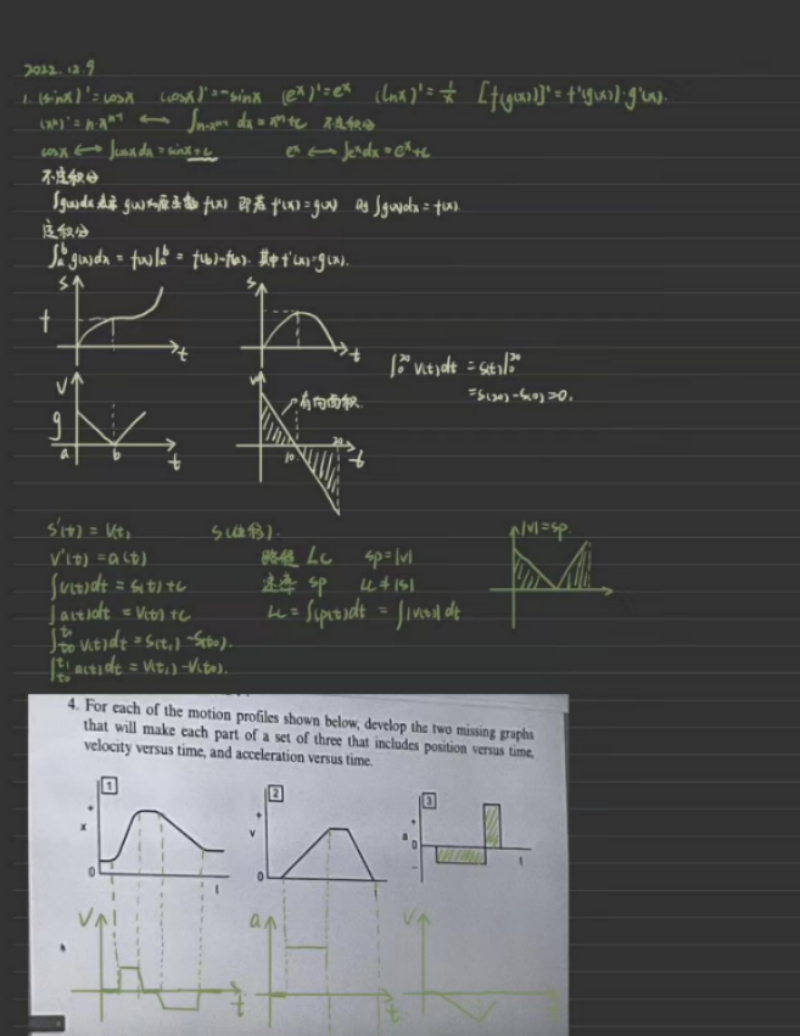 2022.12.9
1. (sinx)'=cosx (cosx)'=-sinx (eˣ)'=eˣ (lnx)'=1/x [f(g(x))]'=f'(g(x))·g'(x).
(xⁿ)'=n·xⁿ⁻¹ ⟷ ∫n·xⁿ⁻¹ dx=xⁿ+c 不定积分
cosx ⟷ ∫cosxdx=sinx+c eˣ ⟷ ∫eˣdx=eˣ+c
不定积分
∫g(x)dx 表示 g(x)的原函数 f(x) 即若 f'(x)=g(x) 则 ∫g(x)dx=f(x).
定积分
∫ₐᵇ g(x)dx = f(x)|ₐᵇ = f(b)-f(a). 其中 f'(x)=g(x).
S S
f t t
∫₀²⁰ V(t)dt = S(t)|₀²⁰
=S(20)-S(0)>0.
V V
有向面积.
g
a b t 10 20 t
S'(t) = V(t) S(位移). |V|=sp.
V'(t) = a(t) 路程 Lc sp=|v|
∫V(t)dt = S(t)+c 速率 sp Lc≠|S|
∫a(t)dt = V(t)+c Lc=∫sp(t)dt = ∫|V(t)|dt
∫t₀ᵗ¹ V(t)dt = S(t₁)-S(t₀).
∫t₀ᵗ¹ a(t)dt = V(t₁)-V(t₀).
4. For each of the motion profiles shown below, develop the two missing graphs
that will make each part of a set of three that includes position versus time,
velocity versus time, and acceleration versus time.
1 2 3
+ + +
x v a 0
0 0 −
t t
V a V
t t